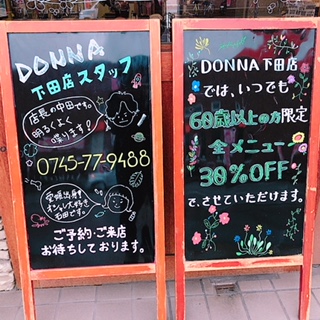 DONNA
下田店スタッフ
店長の中田です。
明るくよく
喋ります!
0745-77-9488
愛媛出身
オシャレ大好き
石田です。
ご予約・ご来店
お待ちしております。
DONNA下田店
では、いつでも
60歳以上の方限定
全メニュー
30%OFF
で、させていただけます。